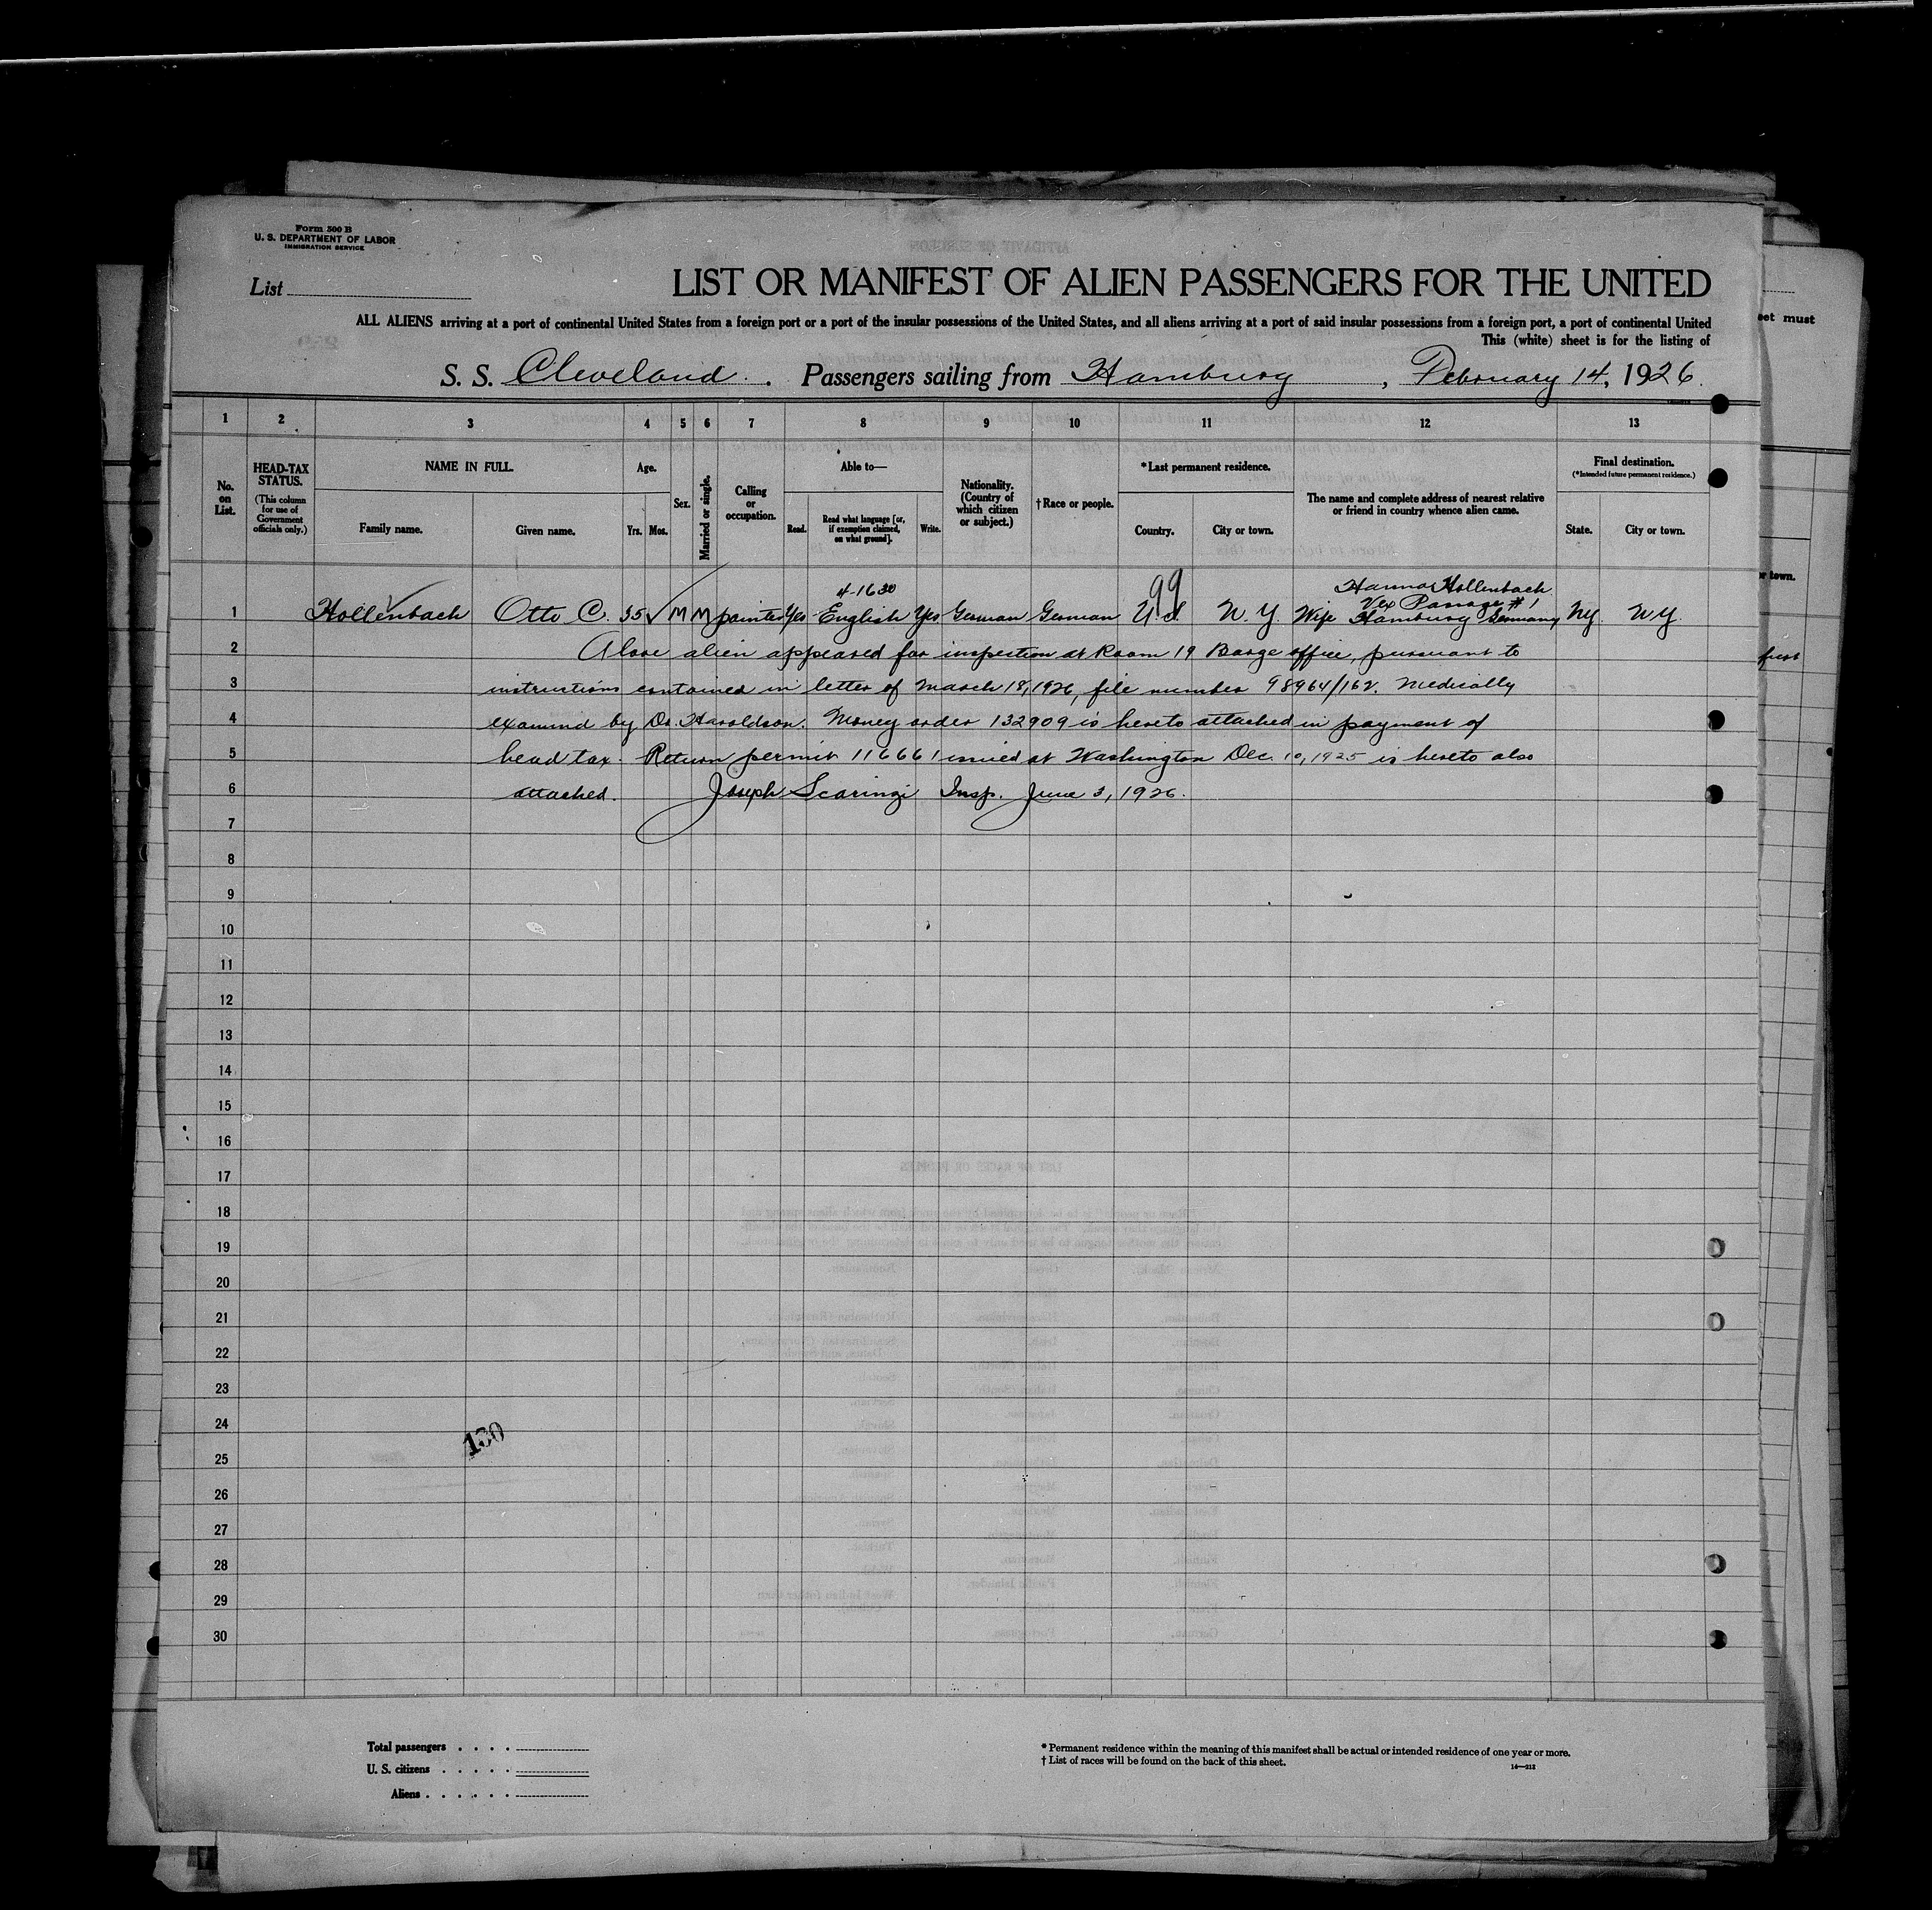 Form 500 B
U. S. DEPARTMENT OF LABOR
IMMIGRATION SERVICE
List
LIST OR MANIFEST OF ALIEN PASSENGERS FOR THE UNITED
ALL ALIENS arriving at a port of continental United States from a foreign port or a port of the insular possessions of the United States, and all aliens arriving at a port of said insular possessions from a foreign port, a port of continental United
This (white) sheet is for the listing of
eet must
S. S. Cleveland. Passengers sailing from Hamburg, February 14, 1926.
1 2 3 4 5 6 7 8 9 10 11 12 13
No. on List.
HEAD-TAX STATUS.
(This column for use of Government officials only.)
NAME IN FULL.
Family name. Given name.
Age.
Yrs. Mos.
Sex.
Married or single.
Calling or occupation.
Able to—
Read. Read what language [or, if exemption claimed, on what ground]. Write.
Nationality. (Country of which citizen or subject.)
† Race or people.
*Last permanent residence.
Country. City or town.
The name and complete address of nearest relative or friend in country whence alien came.
Final destination.
(*Intended future permanent residence.)
State. City or town.
or town.
4-1630
99
Hanna Hollenbach
Passage # 1
1 Hollenbach Otto C. 35 M M painter Yes English Yes German German U.S. N. Y. Wife Hamburg Germany NY. NY.
2 Above alien appeared for inspection at Room 19 Barge office, pursuant to
3 instructions contained in letter of March 18, 1926, file number 98964/162. Medically
4 examined by Dr. Haroldson. Money order 132909 is hereto attached in payment of
5 head tax. Return permit 116661 issued at Washington Dec. 10, 1925 is hereto also
6 attached. Joseph Scaringi Insp. June 3, 1926.
7
8
9
10
11
12
13
14
15
16
17
18
19
20
21
22
23
24
130
25
26
27
28
29
30
Total passengers . . . .
U. S. citizens . . . . .
Aliens . . . . . .
* Permanent residence within the meaning of this manifest shall be actual or intended residence of one year or more.
† List of races will be found on the back of this sheet.
14—212